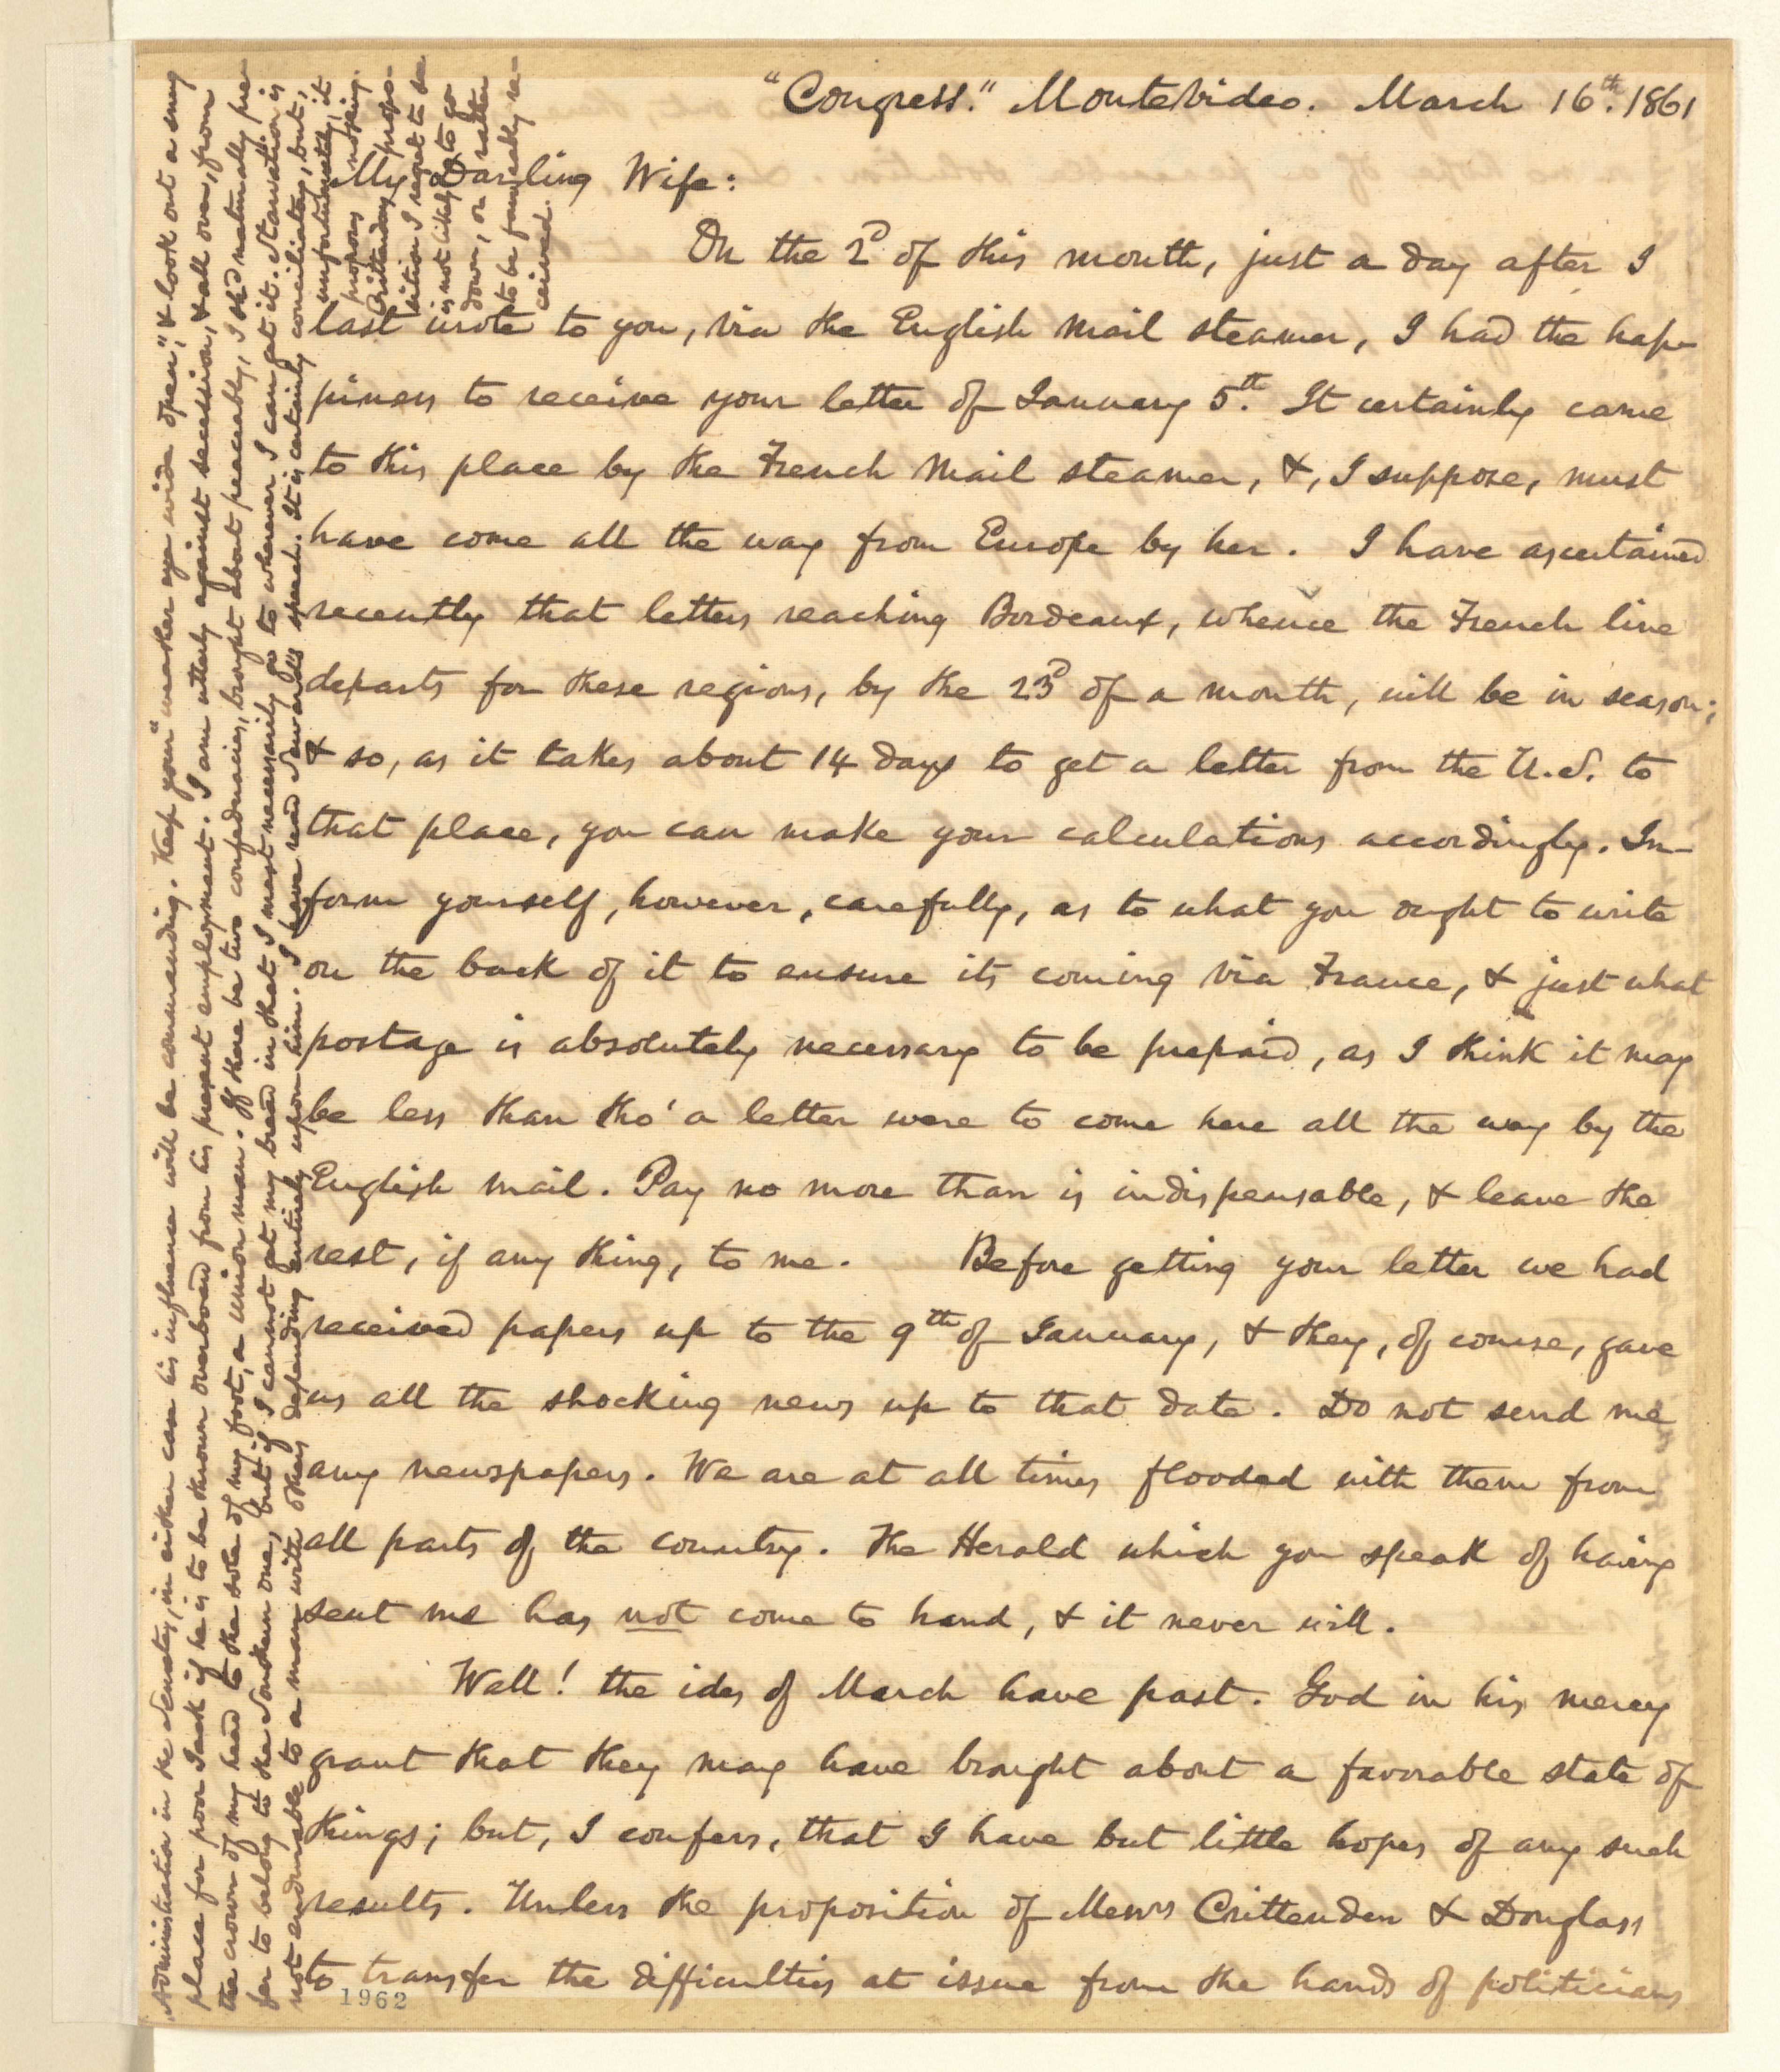 "Congress." Montevideo. March 16th. 1861
My Darling Wife:
On the 2d of this month, just a day after I
last wrote to you, via the English mail steamer, I had the hap-
piness to receive your letter of January 5th. It certainly came
to this place by the French mail steamer, &, I suppose, must
have come all the way from Europe by her. I have ascertained
recently that letters reaching Bordeaux, whence the French line
departs for these regions, by the 23d of a month, will be in season;
& so, as it takes about 14 days to get a letter from the U.S. to
that place, you can make your calculations accordingly. In-
form yourself, however, carefully, as to what you ought to write
on the back of it to ensure its coming via France, & just what
postage is absolutely necessary to be prepaid, as I think it may
be less than tho' a letter were to come here all the way by the
English mail. Pay no more than is indispensable, & leave the
rest, if any thing, to me. Before getting your letter we had
received papers up to the 9th of January, & they, of course, gave
us all the shocking news up to that date. Do not send me
any newspapers. We are at all times flooded with them from
all parts of the country. The Herald which you speak of having
sent me has not come to hand, & it never will.
Well! the ides of March have past. God in his mercy
grant that they may have brought about a favorable state of
things; but, I confess, that I have but little hopes of any such
results. Unless the proposition of Messrs Crittenden & Douglass
to transfer the difficulties at issue from the hands of politicians
1962
Administration in the Senate, in either case his influence will be commanding. Keep your "weather eye wide open", & look out a snug
place for poor Jack if he is to be thrown overboard from his present employment. I am utterly against secession, & all over, from
the crown of my head to the sole of my foot, a Union man. If there be two confederacies, brought about peaceably, I shd naturally pre-
fer to belong to the Southern one, but if I cannot get my bread in that I must necessarily go to wherever I can get it. Starvation is
not endurable to a man with others depending entirely upon him. I have read Seward's speech. It is certainly conciliatory, but,
unfortunately, it
proposes nothing.
Crittenden's propo-
sition I regret to see
is not likely to go
down, or rather
to be favorably re-
ceived.